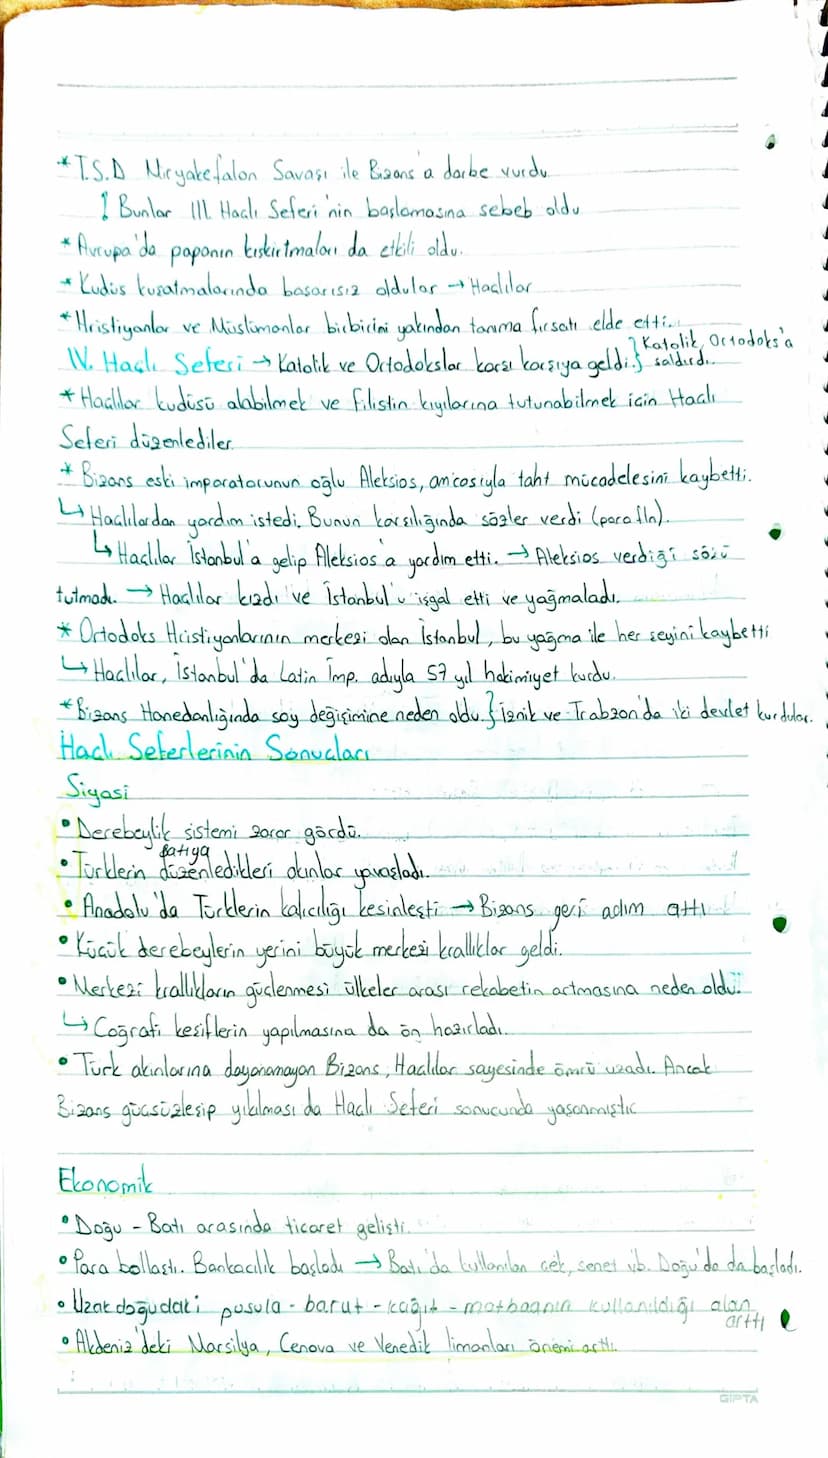 * T.S.D Miryakefalon Savaşı ile Bizans'a darbe vurdu
! Bunlar III. Haçlı Seferi'nin başlamasına sebeb oldu
* Avrupa'da papanın kışkırtmaları da etkili oldu.
* Kudüs kuşatmalarında başarısız oldular → Haçlılar
* Hristiyanlar ve Müslümanlar birbirini yakından tanıma fırsatı elde etti.
IV. Haçlı Seferi → Katolik ve Ortodokslar karşı karşıya geldi. } Katolik, Ortodoks'a saldırdı.
* Haçlılar kudüsü alabilmek ve Filistin kıyılarına tutunabilmek için Haçlı
Seferi düzenlediler.
* Bizans eski imparatorunun oğlu Aleksios, amcasıyla taht mücadelesini kaybetti.
↳ Haçlılardan yardım istedi. Bunun karşılığında sözler verdi (para fln).
↳ Haçlılar İstanbul'a gelip Aleksios'a yardım etti. → Aleksios verdiği sözü
tutmadı. → Haçlılar kızdı ve İstanbul'u işgal etti ve yağmaladı.
* Ortodoks Hristiyanlarının merkezi olan İstanbul, bu yağma ile her şeyini kaybetti
↳ Haçlılar, İstanbul'da Latin İmp. adıyla 57 yıl hakimiyet kurdu.
* Bizans Hanedanlığında soy değişimine neden oldu. } İznik ve Trabzon'da iki devlet kurdular.
Haçlı Seferlerinin Sonuçları
Siyasi
• Derebeylik sistemi zarar gördü.
• Türklerin batıya düzenledikleri akınlar yavaşladı.
• Anadolu'da Türklerin kalıcılığı kesinleşti → Bizans geri adım attı
• Küçük derebeylerin yerini büyük merkezi krallıklar geldi.
• Merkezi krallıkların güçlenmesi ülkeler arası rekabetin artmasına neden oldu.
↳ Coğrafi keşiflerin yapılmasına da ön hazırladı.
• Türk akınlarına dayanamayan Bizans, Haçlılar sayesinde ömrü uzadı. Ancak
Bizans güçsüzleşip yıkılması da Haçlı Seferi sonucunda yaşanmıştır
Ekonomik
• Doğu - Batı arasında ticaret gelişti.
• Para bollaştı. Bankacılık başladı → Batı'da kullanılan çek, senet vb. Doğu'da da başladı.
• Uzak doğudaki pusula - barut - kağıt - matbaanın kullanıldığı alan arttı
• Akdeniz'deki Marsilya, Cenova ve Venedik limanları önemi arttı.
GIPTA